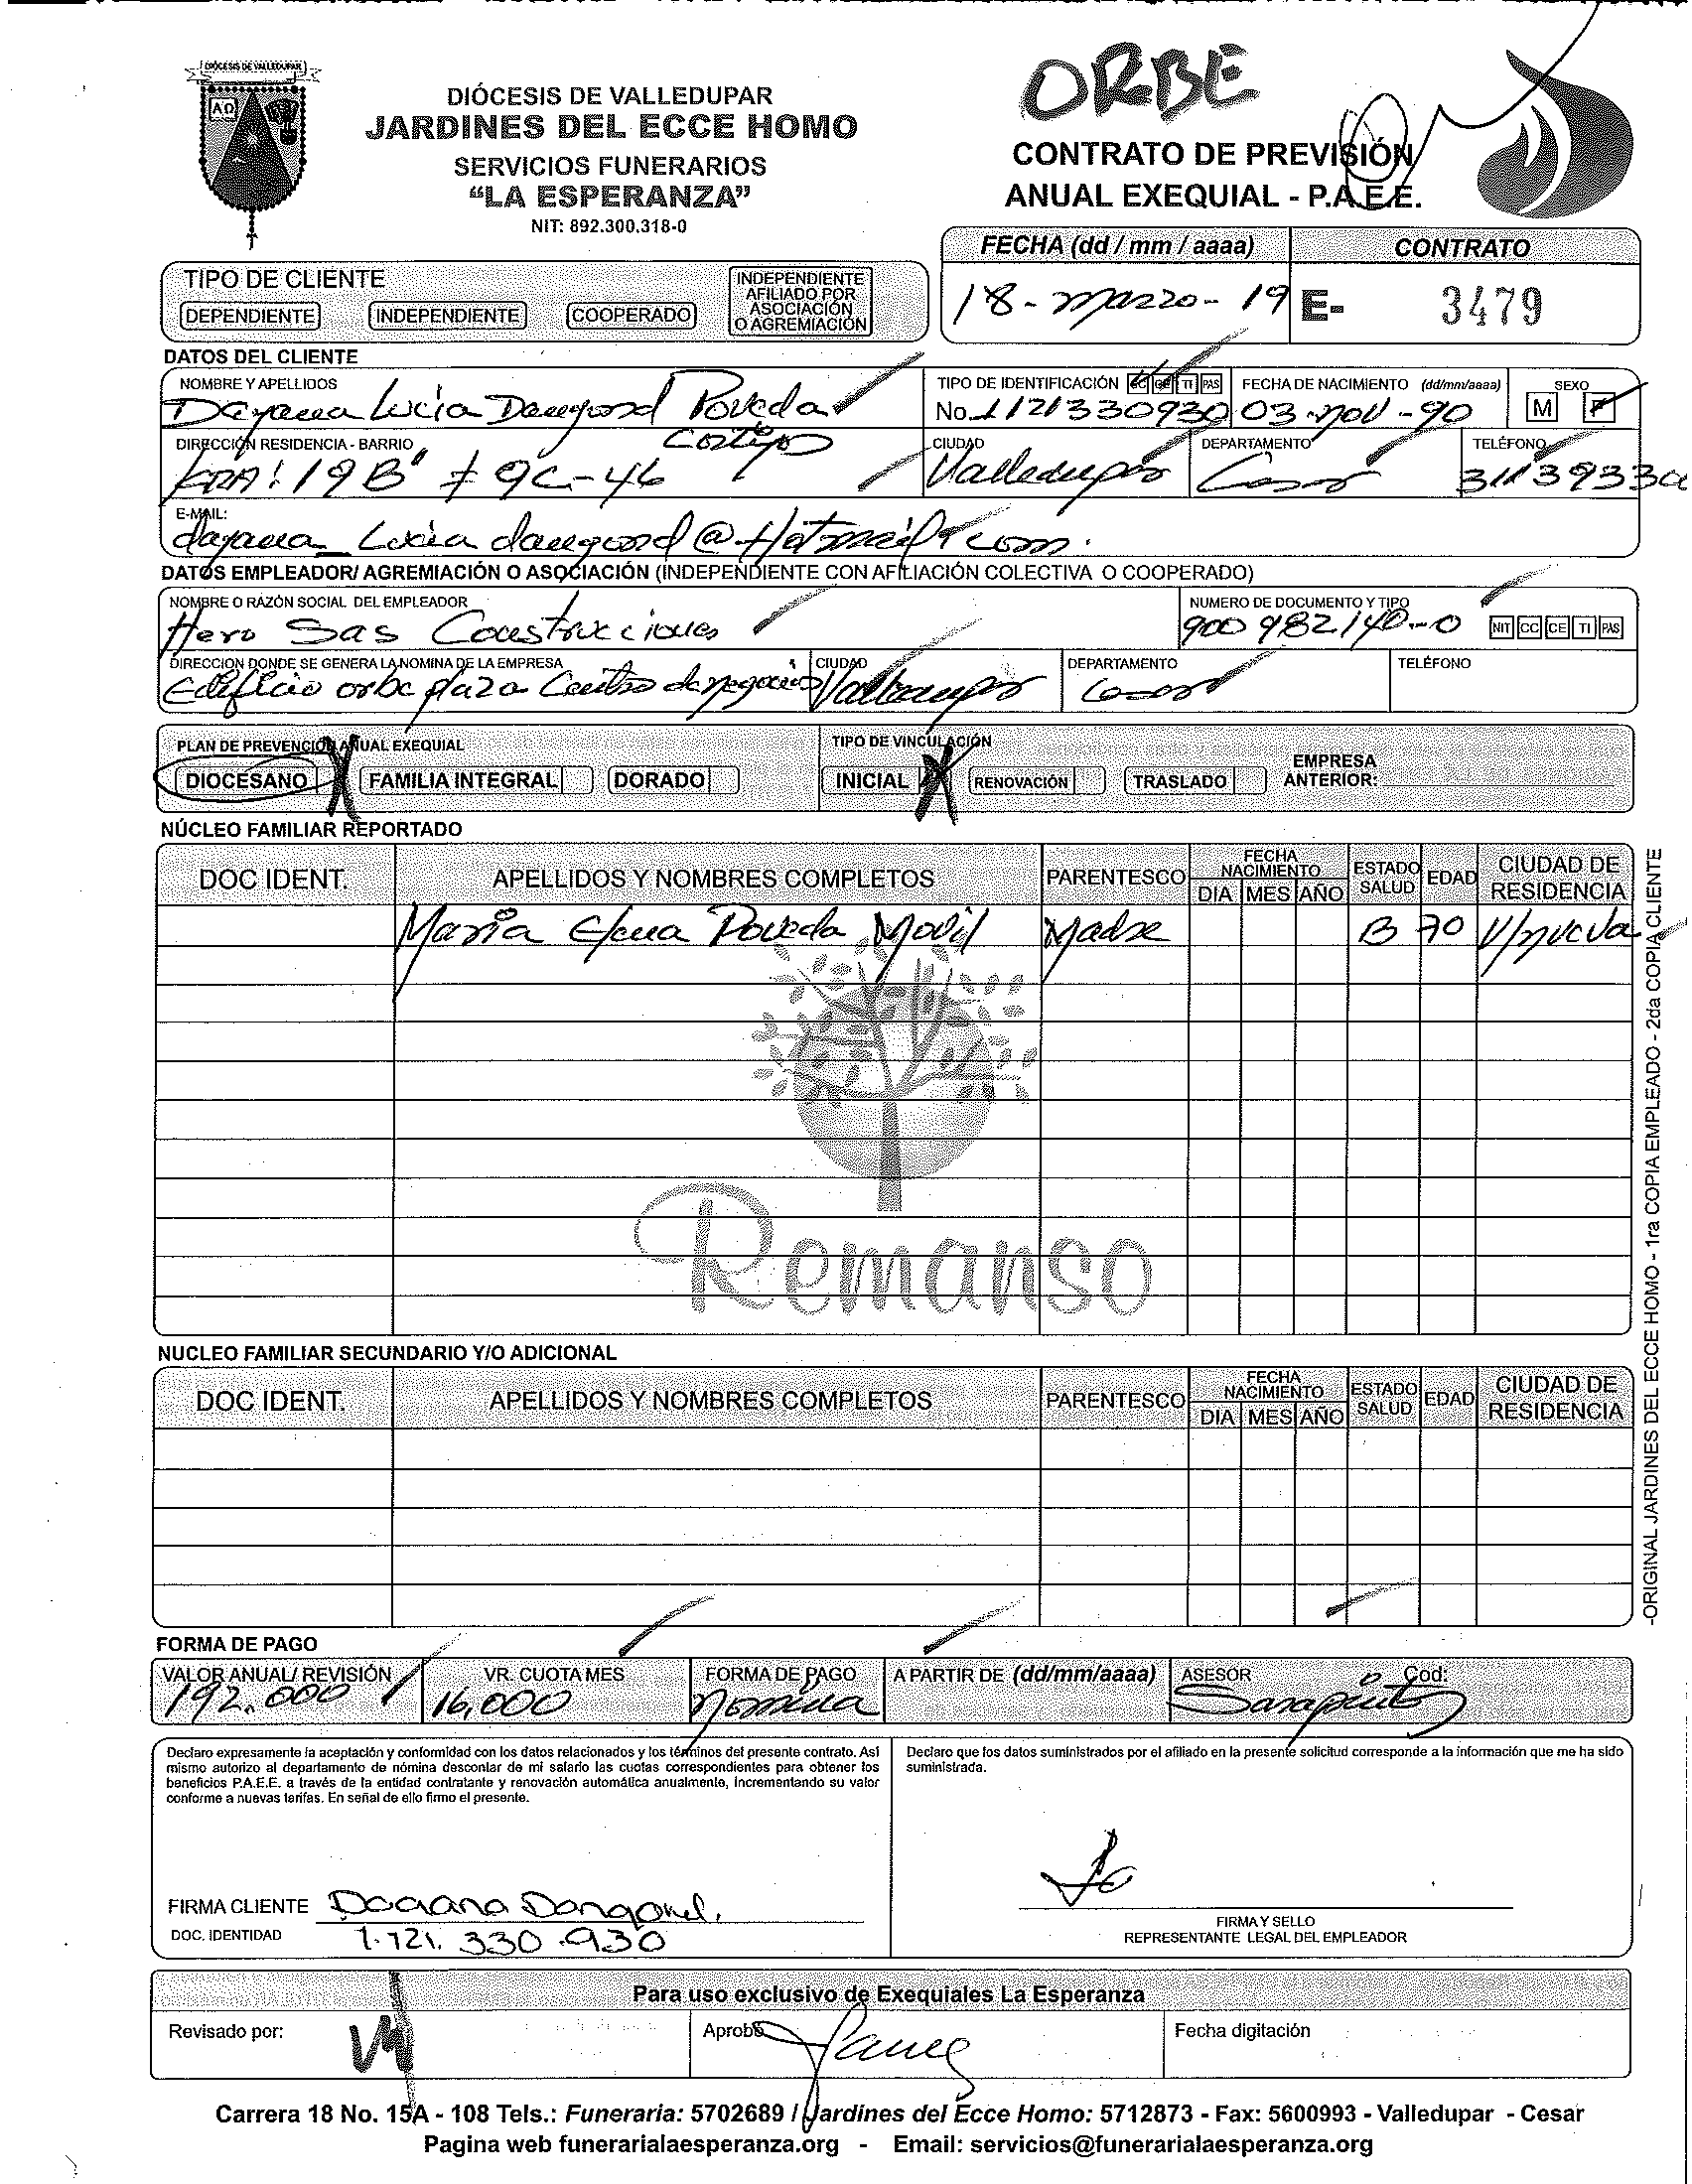 DIÓCESIS DE VALLEDUPAR
AΩ
DIÓCESIS DE VALLEDUPAR
JARDINES DEL ECCE HOMO
SERVICIOS FUNERARIOS
"LA ESPERANZA"
NIT: 892.300.318-0
ORBE
CONTRATO DE PREVISIÓN
ANUAL EXEQUIAL - P.A.E.E.
FECHA (dd / mm / aaaa) CONTRATO
18-marzo-19 E- 3479
TIPO DE CLIENTE
DEPENDIENTE INDEPENDIENTE COOPERADO INDEPENDIENTE AFILIADO POR ASOCIACIÓN O AGREMIACIÓN
DATOS DEL CLIENTE
NOMBRE Y APELLIDOS TIPO DE IDENTIFICACIÓN CC CE TI PAS FECHA DE NACIMIENTO (dd/mm/aaaa) SEXO
Dayana Lucia Dangond Poveda No. 1121330930 03-nov-90 M F
DIRECCIÓN RESIDENCIA - BARRIO CIUDAD DEPARTAMENTO TELÉFONO
KRA: 19B # 9C-46 Valledupar Cesar
E-MAIL:
dayana_Lucia dangond@Hotmail.com.
DATOS EMPLEADOR/ AGREMIACIÓN O ASOCIACIÓN (INDEPENDIENTE CON AFILIACIÓN COLECTIVA O COOPERADO)
NOMBRE O RAZÓN SOCIAL DEL EMPLEADOR NUMERO DE DOCUMENTO Y TIPO
Hero Sas Construcciones 900982140-0 NIT CC CE TI PAS
DIRECCION DONDE SE GENERA LA NOMINA DE LA EMPRESA CIUDAD DEPARTAMENTO TELÉFONO
Edificio orbe plaza Centro de negocios Valledupar Cesar
PLAN DE PREVENCIÓN ANUAL EXEQUIAL TIPO DE VINCULACIÓN
DIOCESANO X FAMILIA INTEGRAL DORADO INICIAL X RENOVACIÓN TRASLADO EMPRESA ANTERIOR:
NÚCLEO FAMILIAR REPORTADO
DOC IDENT. APELLIDOS Y NOMBRES COMPLETOS PARENTESCO FECHA NACIMIENTO DIA MES AÑO ESTADO SALUD EDAD CIUDAD DE RESIDENCIA
Maria Elena Poveda Movil Madre B 70 V/nueva
Remanso
NUCLEO FAMILIAR SECUNDARIO Y/O ADICIONAL
DOC IDENT. APELLIDOS Y NOMBRES COMPLETOS PARENTESCO FECHA NACIMIENTO DIA MES AÑO ESTADO SALUD EDAD CIUDAD DE RESIDENCIA
-ORIGINAL JARDINES DEL ECCE HOMO - 1ra COPIA EMPLEADO - 2da COPIA CLIENTE
FORMA DE PAGO
VALOR ANUAL/ REVISIÓN VR. CUOTA MES FORMA DE PAGO A PARTIR DE (dd/mm/aaaa) ASESOR Cod:
192.000 16,000 Nomina
Declaro expresamente la aceptación y conformidad con los datos relacionados y los términos del presente contrato. Así
mismo autorizo al departamento de nómina descontar de mi salario las cuotas correspondientes para obtener los
beneficios P.A.E.E. a través de la entidad contratante y renovación automática anualmente, incrementando su valor
conforme a nuevas tarifas. En señal de ello firmo el presente.
Declaro que los datos suministrados por el afiliado en la presente solicitud corresponde a la información que me ha sido
suministrada.
FIRMA CLIENTE Dayana Dangond.
DOC. IDENTIDAD 1.121.330.930
FIRMA Y SELLO
REPRESENTANTE LEGAL DEL EMPLEADOR
Para uso exclusivo de Exequiales La Esperanza
Revisado por: Aprobó Fecha digitación
Carrera 18 No. 15A - 108 Tels.: Funeraria: 5702689 / Jardines del Ecce Homo: 5712873 - Fax: 5600993 - Valledupar - Cesar
Pagina web funerarialaesperanza.org - Email: servicios@funerarialaesperanza.org